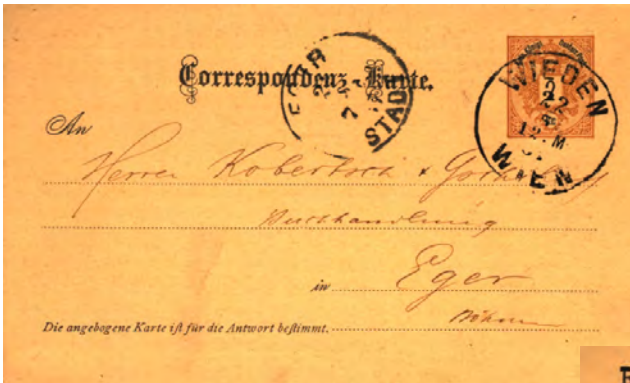 Correspondenz-Karte.
EGER
STADT
WIEDEN
WIEN
An
Herren Kobertsch &
Buchhandlung
in Eger
Böhmen
Die angebogene Karte iſt für die Antwort beſtimmt.